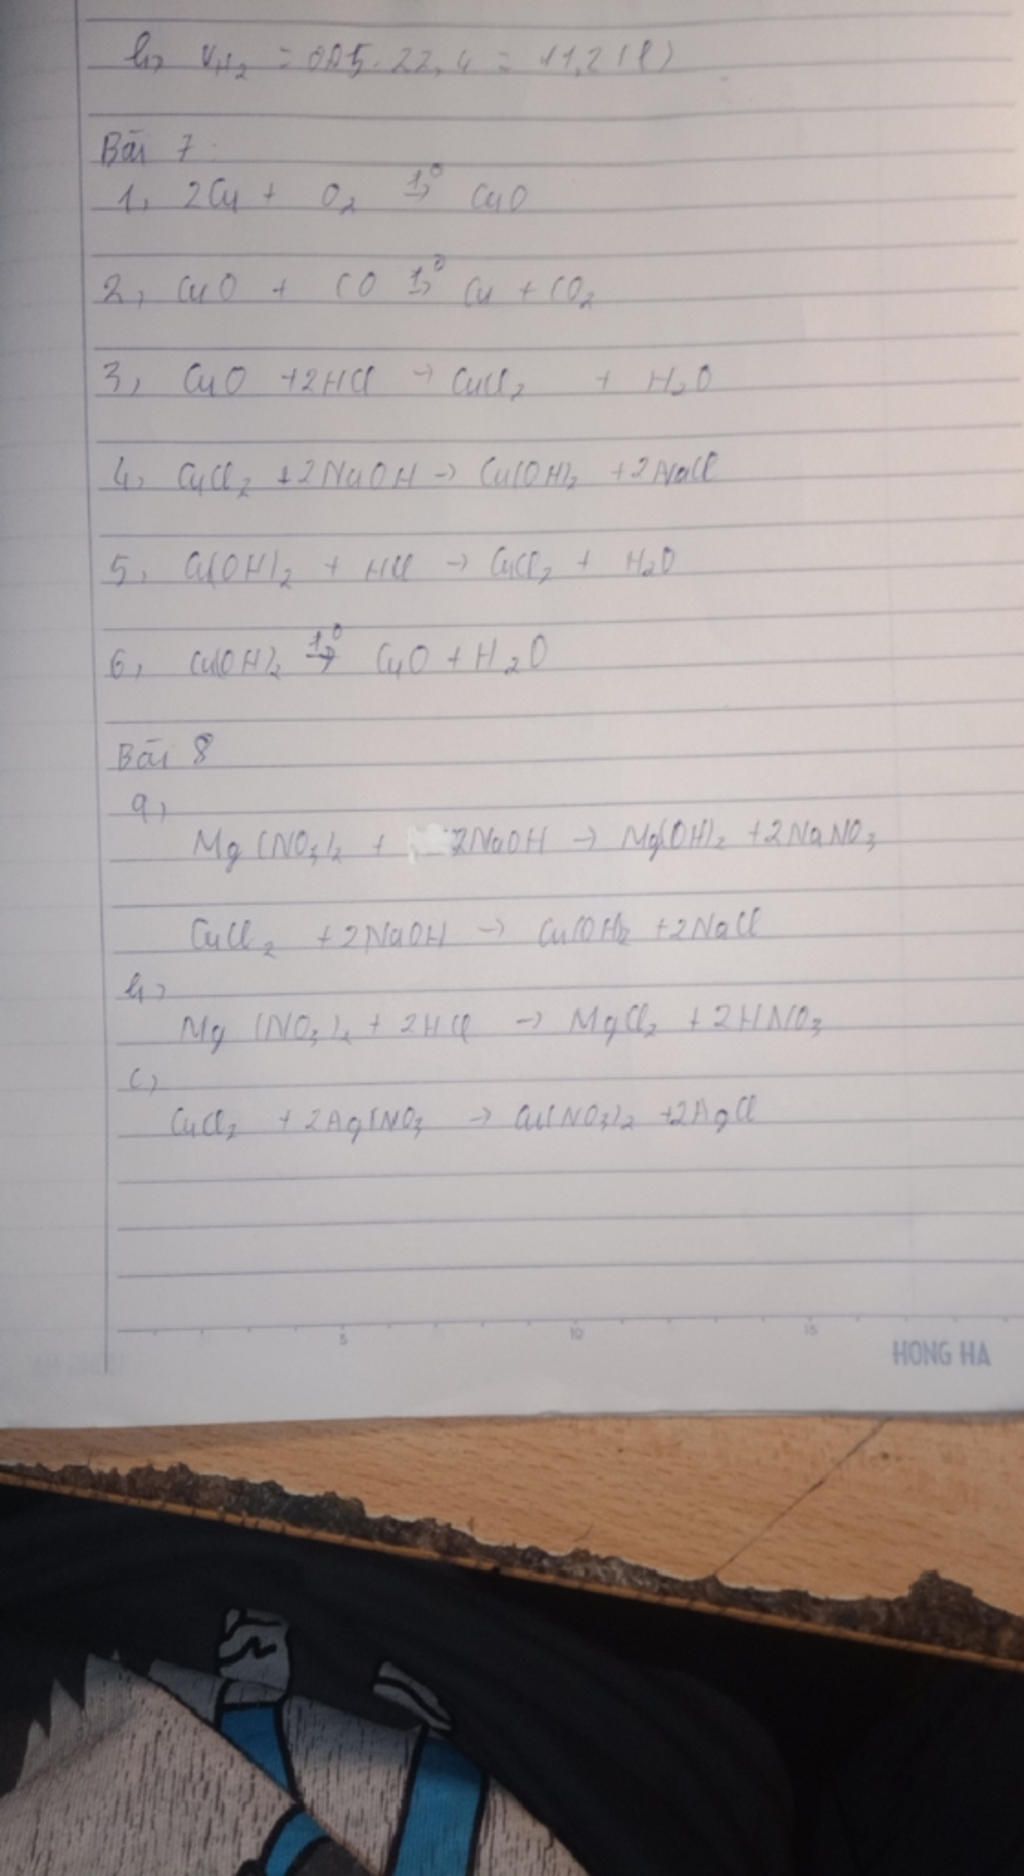 b, V_H₂ = 0,05.22,4 = 11,2 (l)
Bài 7
1, 2Cu + O₂ t°→ CuO
2, CuO + CO t°→ Cu + CO₂
3, CuO + 2HCl → CuCl₂ + H₂O
4, CuCl₂ + 2NaOH → Cu(OH)₂ + 2NaCl
5, Cu(OH)₂ + HCl → CuCl₂ + H₂O
6, Cu(OH)₂ t°→ CuO + H₂O
Bài 8
a,
Mg(NO₃)₂ + 2NaOH → Mg(OH)₂ + 2NaNO₃
CuCl₂ + 2NaOH → Cu(OH)₂ + 2NaCl
b,
Mg(NO₃)₂ + 2HCl → MgCl₂ + 2HNO₃
c,
CuCl₂ + 2Ag(NO₃ → Cu(NO₃)₂ + 2AgCl
5 10 15
HONG HA